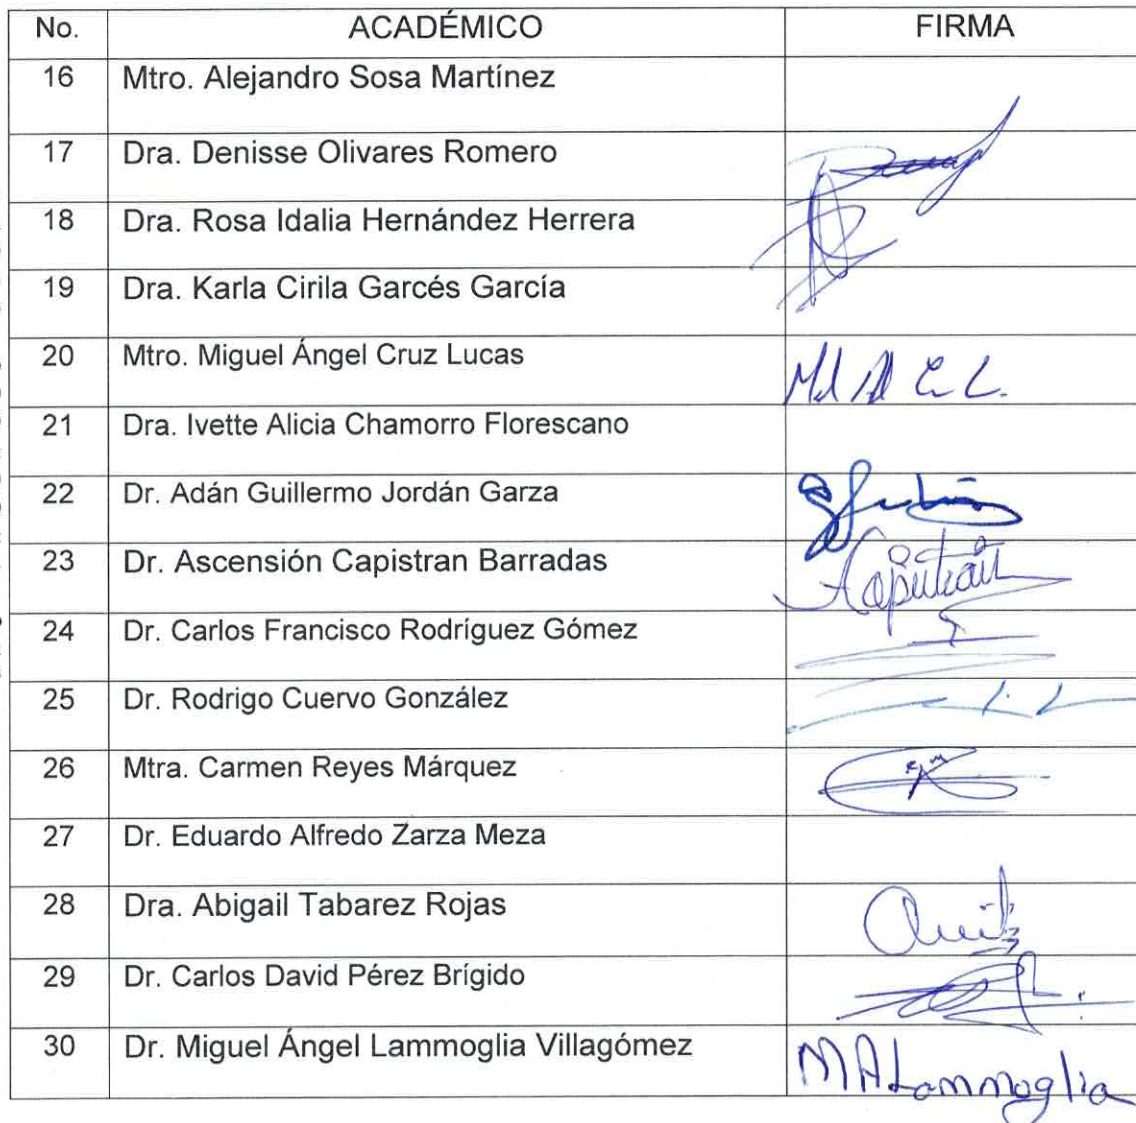 No. ACADÉMICO FIRMA
16 Mtro. Alejandro Sosa Martínez
17 Dra. Denisse Olivares Romero
18 Dra. Rosa Idalia Hernández Herrera
19 Dra. Karla Cirila Garcés García
20 Mtro. Miguel Ángel Cruz Lucas
21 Dra. Ivette Alicia Chamorro Florescano
22 Dr. Adán Guillermo Jordán Garza
23 Dr. Ascensión Capistran Barradas
24 Dr. Carlos Francisco Rodríguez Gómez
25 Dr. Rodrigo Cuervo González
26 Mtra. Carmen Reyes Márquez
27 Dr. Eduardo Alfredo Zarza Meza
28 Dra. Abigail Tabarez Rojas
29 Dr. Carlos David Pérez Brígido
30 Dr. Miguel Ángel Lammoglia Villagómez MALammoglia